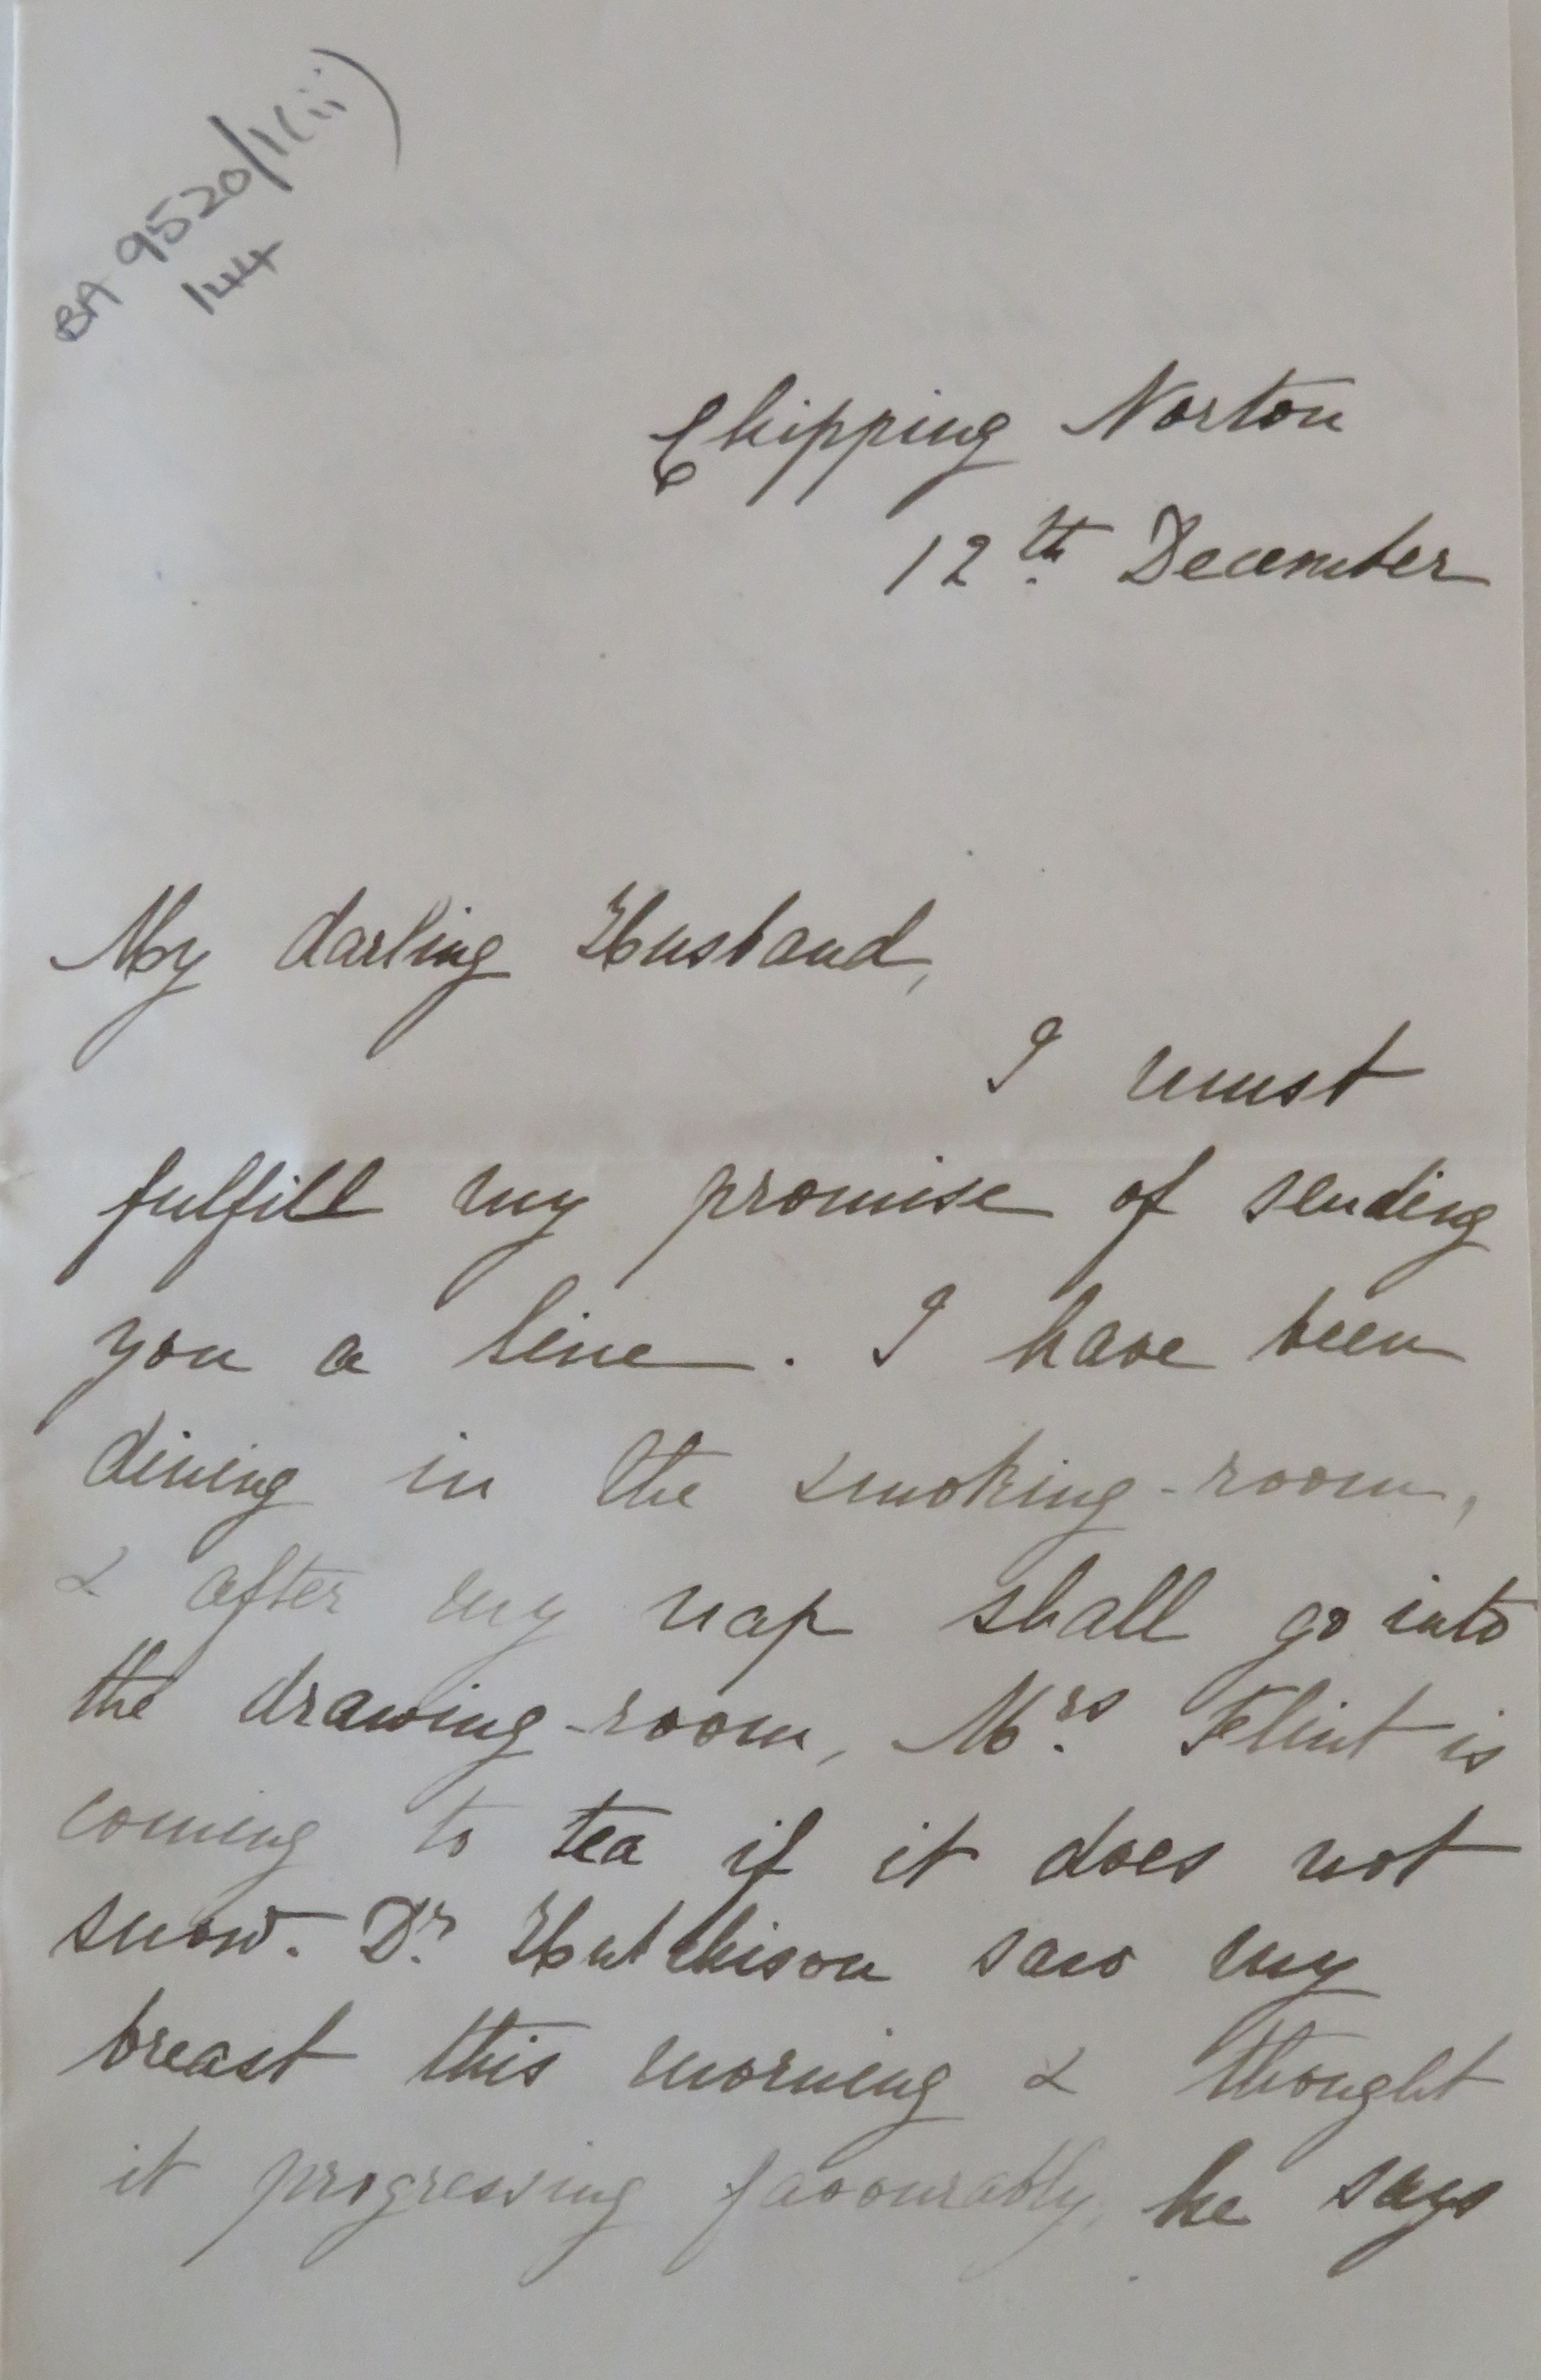 BA 9520/1(ii)
144
Chipping Norton
12th. December
My darling Husband,
I must
fulfill my promise of sending
you a line. I have been
dining in the smoking-room,
& after my nap shall go into
the drawing-room, Mrs. Flint is
coming to tea if it does not
snow. Dr. Hutchison saw my
breast this morning & thought
it progressing favourably, he says